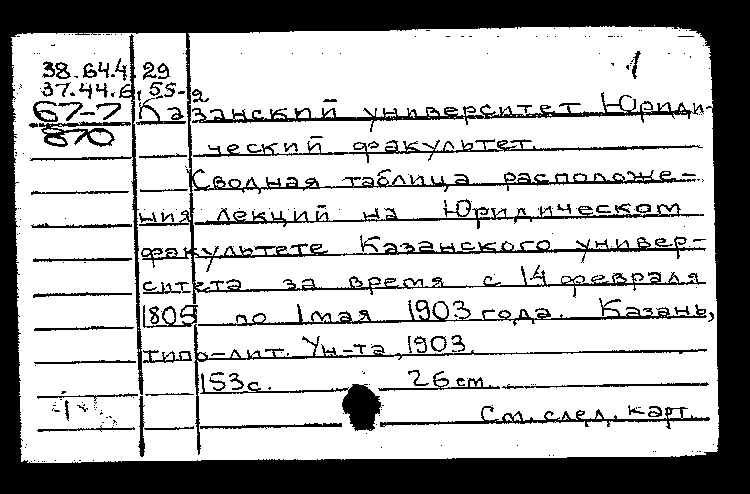 1
38.64.4.29
37.44.6.55-2
67-7 Казанский университет Юриди-
870 ческий факультет.
Сводная таблица расположе-
ния лекций на Юридическом
факультете Казанского универ-
ситета за время с 14 февраля
1805 по 1 мая 1903 года. Казань,
типо-лит. Ун-та, 1903.
153с. 26 cm.
См. след. карт.